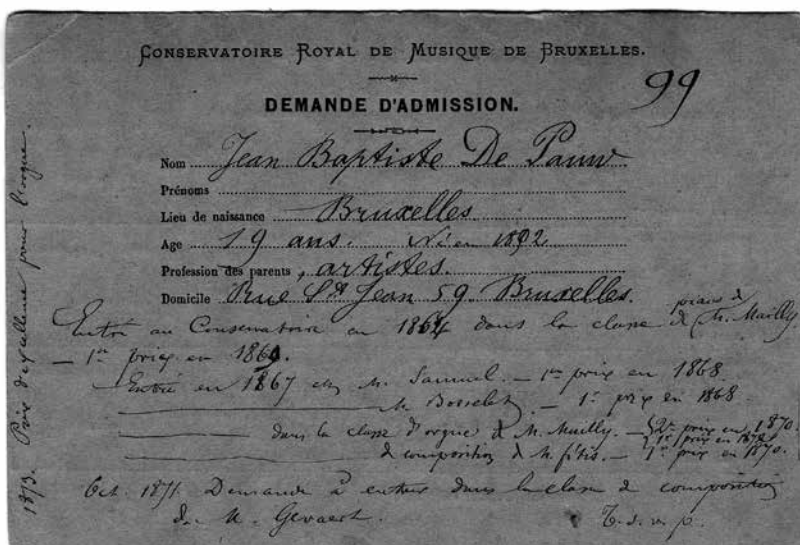 CONSERVATOIRE ROYAL DE MUSIQUE DE BRUXELLES.
99
DEMANDE D'ADMISSION.
Nom Jean Baptiste De Pauw
Prénoms
Lieu de naissance Bruxelles
Age 19 ans. Né en 1852
Profession des parents, artistes.
Domicile Rue St Jean 59. Bruxelles.
Entré au Conservatoire en 1864 dans la classe de piano de M. Mailly.
— 1er prix en 1869.
Entré en 1867 chez M. Samuel. — 1er prix en 1868.
M. Bosselet. — 1r prix en 1868.
dans la classe d'orgue de M. Mailly. — 2e prix en 1870.
1r prix en
de composition de M. fétis. — 1r prix en 1870.
Oct. 1871. Demande à entrer dans la classe de composition
de M. Gevaert.
T. s. v. p.
1873. Prix d'excellence pour l'orgue.